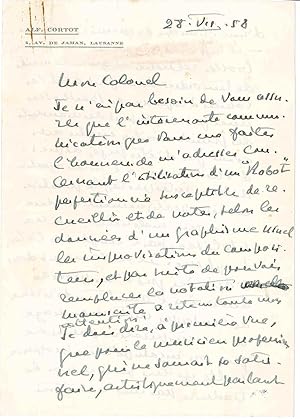 ALF. CORTOT
AV. DE JAMAN, LAUSANNE
28-VII-58
Mon Colonel
Je n'ai pas besoin de vous assu-
rer que l'intéressante commu-
nication que vous me faites
l'honneur de m'adresser con-
cernant l'utilisation d'un "Robot"
perfectionné susceptible de re-
cueillir et de noter, selon les
données d'un graphisme usuel
les improvisations du composi-
teur, et par suite de pouvoir
remplacer la notation
manuscrite, a retenu toute mon
attention.
Je dois dire, à première vue,
que pour le musicien profession-
nel, qui ne saurait se satis-
faire, artistiquement parlant